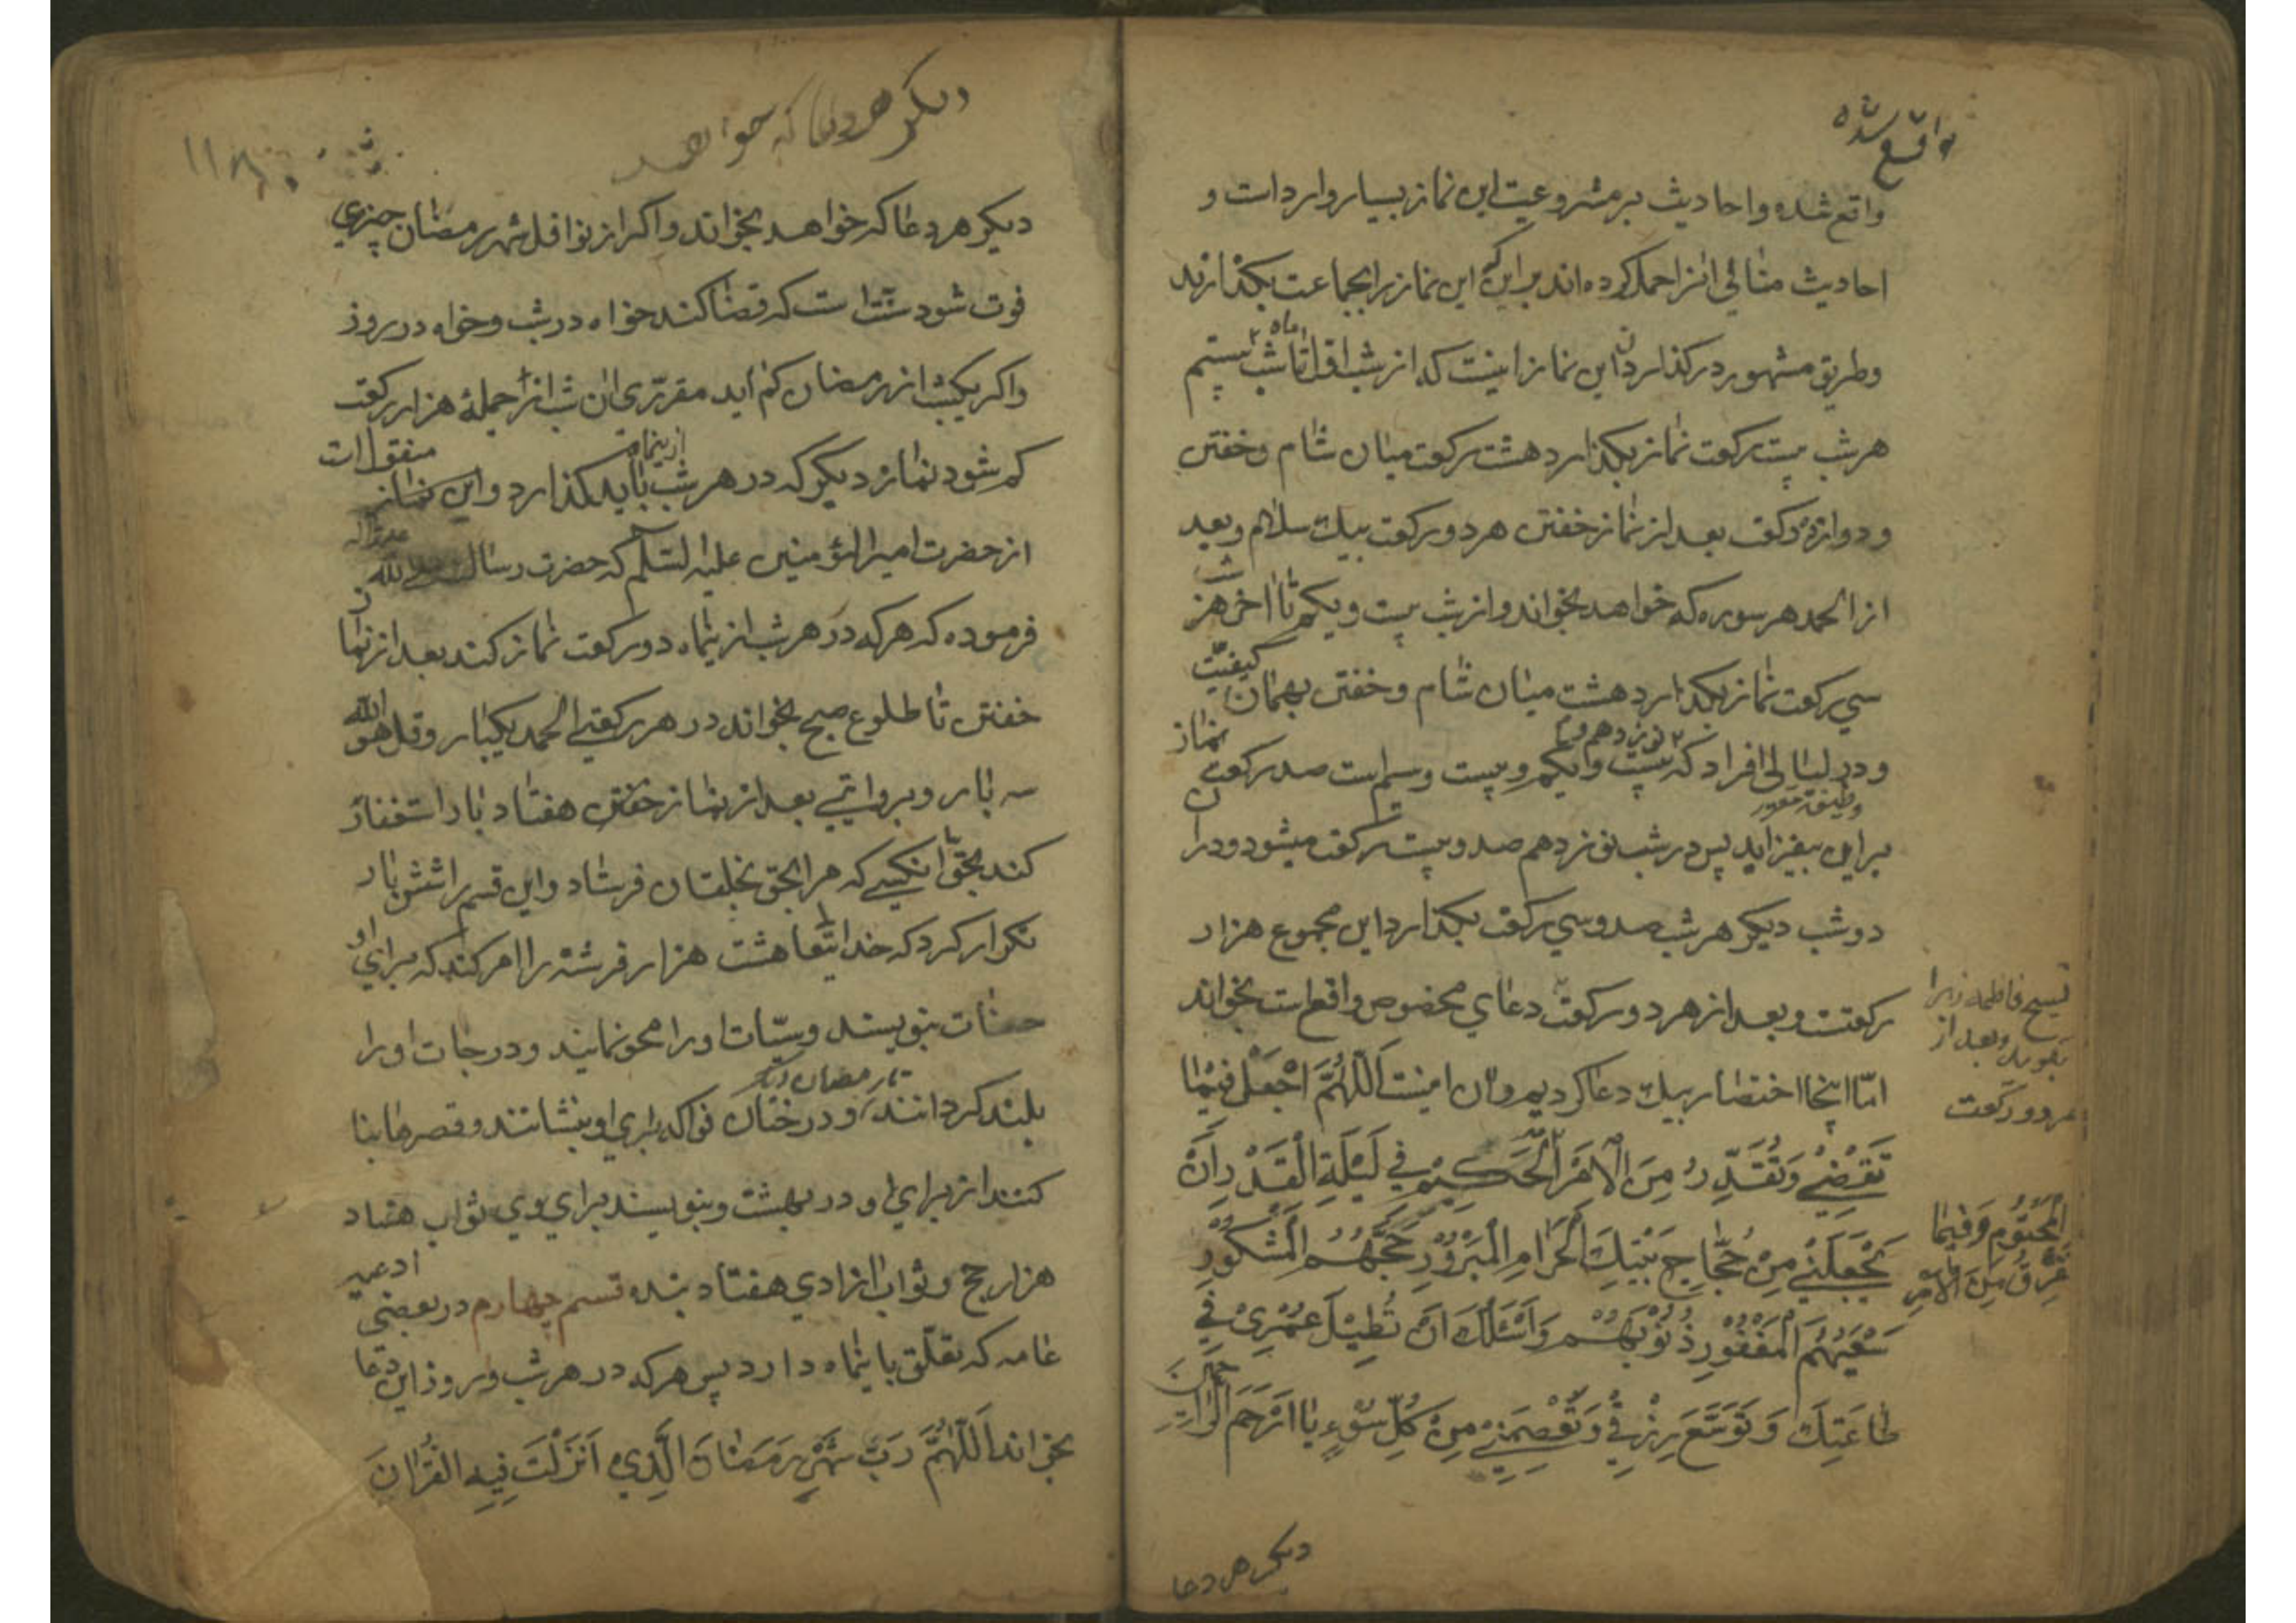 واقع شده
واقع شده و احادیث بر مشروعیت این نماز بسیار وارد است و
احادیث منافی انرا حمل کرده اند بر این که این نماز را بجماعت بکذارند
وطریق مشهور در کذاردن این نماز اینست که از شب اول ماه تا شب بیستم
هر شب بیست رکعت نماز بکذارد هشت رکعت میان شام و خفتن
و دوازده رکعت بعد از نماز خفتن هر دو رکعت بیک سلام و بعد
از الحمد هر سوره که خواهد بخواند و از شب بیست و یکم تا اخر هر شب
سی رکعت نماز بکذارد هشت میان شام و خفتن بهمان کیفیّت
و در لیالی افراد که نوزدهم و بیست و یکم و بیست و سیم است صد رکعت نماز
بر این بیفزاید پس در شب نوزدهم صد و بیست رکعت میشود و در ان
دو شب دیکر هر شب صد و سی رکعت بکذارد این مجموع هزار
رکعتست و بعد از هر دو رکعت دعای مخصوص واقع است بخواند
تسبیح فاطمه زهرا
بکوید و بعد از
هر دو رکعت
امّا اینجا اختصار بیک دعا کردیم و ان اینست اَللّٰهُمَّ اجْعَلْ فیْمٰا
تَقْضِیْ وَتُقَدِّرُ مِنَ الْاَمْرِ الْحَکیْمِ فی لَیْلَةِ الْقَدْرِ اَنْ
الْمَحْتُوْمِ وَفیْمٰا
تَفْرُقُ مِنَ الْاَمْرِ
تَجْعَلَنیْ مِنْ حُجّٰاجِ بَیْتِكَ الْحَرٰامِ الْمَبْرُوْرِ حَجُّهُمُ الْمَشْکُوْرِ
سَعْیُهُمُ الْمَغْفُوْرِ ذُنُوْبُهُمْ وَاَسْئَلُكَ اَنْ تُطیْلَ عُمْرِیْ فی
طٰاعَتِكَ وَتُوَسِّعَ رِزْقیْ وَتَعْصِمَنیْ مِنْ کُلِّ سُوْءٍ یٰا اَرْحَمَ الرّٰاحِمیْنَ
دیکر هر دعا
دیکر هر دعا که خواهد
دیکر هر دعا که خواهد بخواند و اکر از نوافل شهر رمضان چیزی
فوت شود سنّت است که قضا کند خواه در شب و خواه در روز
و اکر یکشب از رمضان کم اید مقرّری ان شب از جملهٔ هزار رکعت
کم شود نماز دیکر که در هر شب ازینماه باید کذارد و این نماز منقول است
از حضرت امیر المؤمنین علیه السّلم که حضرت رسالت صلی الله علیه و اله
فرموده که هر که در هر شب ازینماه دو رکعت نماز کند بعد از نماز
خفتن تا طلوع صبح بخواند در هر رکعتی الحمد یکبار و قل هو الله
سه بار و بروایتی بعد از نماز خفتن هفتاد بار استغفار
کند بحقّ انکسی که مرا بحق بخلقان فرستاد و این قسم را شش بار
تکرار کرد که خدایتعا هشت هزار فرشته را امر کند که برای او
حسنات بنویسند و سیّئات او را محو نمایند و درجات او را
بلند کردانند تا رمضان دیکر و درختان فواکه برای او بنشانند و قصرها بنا
کنند از برای او در بهشت و بنویسند برای وی ثواب هفتاد
هزار حج و ثواب ازادی هفتاد بنده قسم چهارم در بعضی ادعیه
عامه که تعلّق باینماه دارد پس هر که در هر شب و روز این دعا
بخواند اَللّٰهُمَّ رَبَّ شَهْرِ رَمَضٰانَ الَّذِیْ اَنْزَلْتَ فِیْهِ الْقُرْاٰنَ